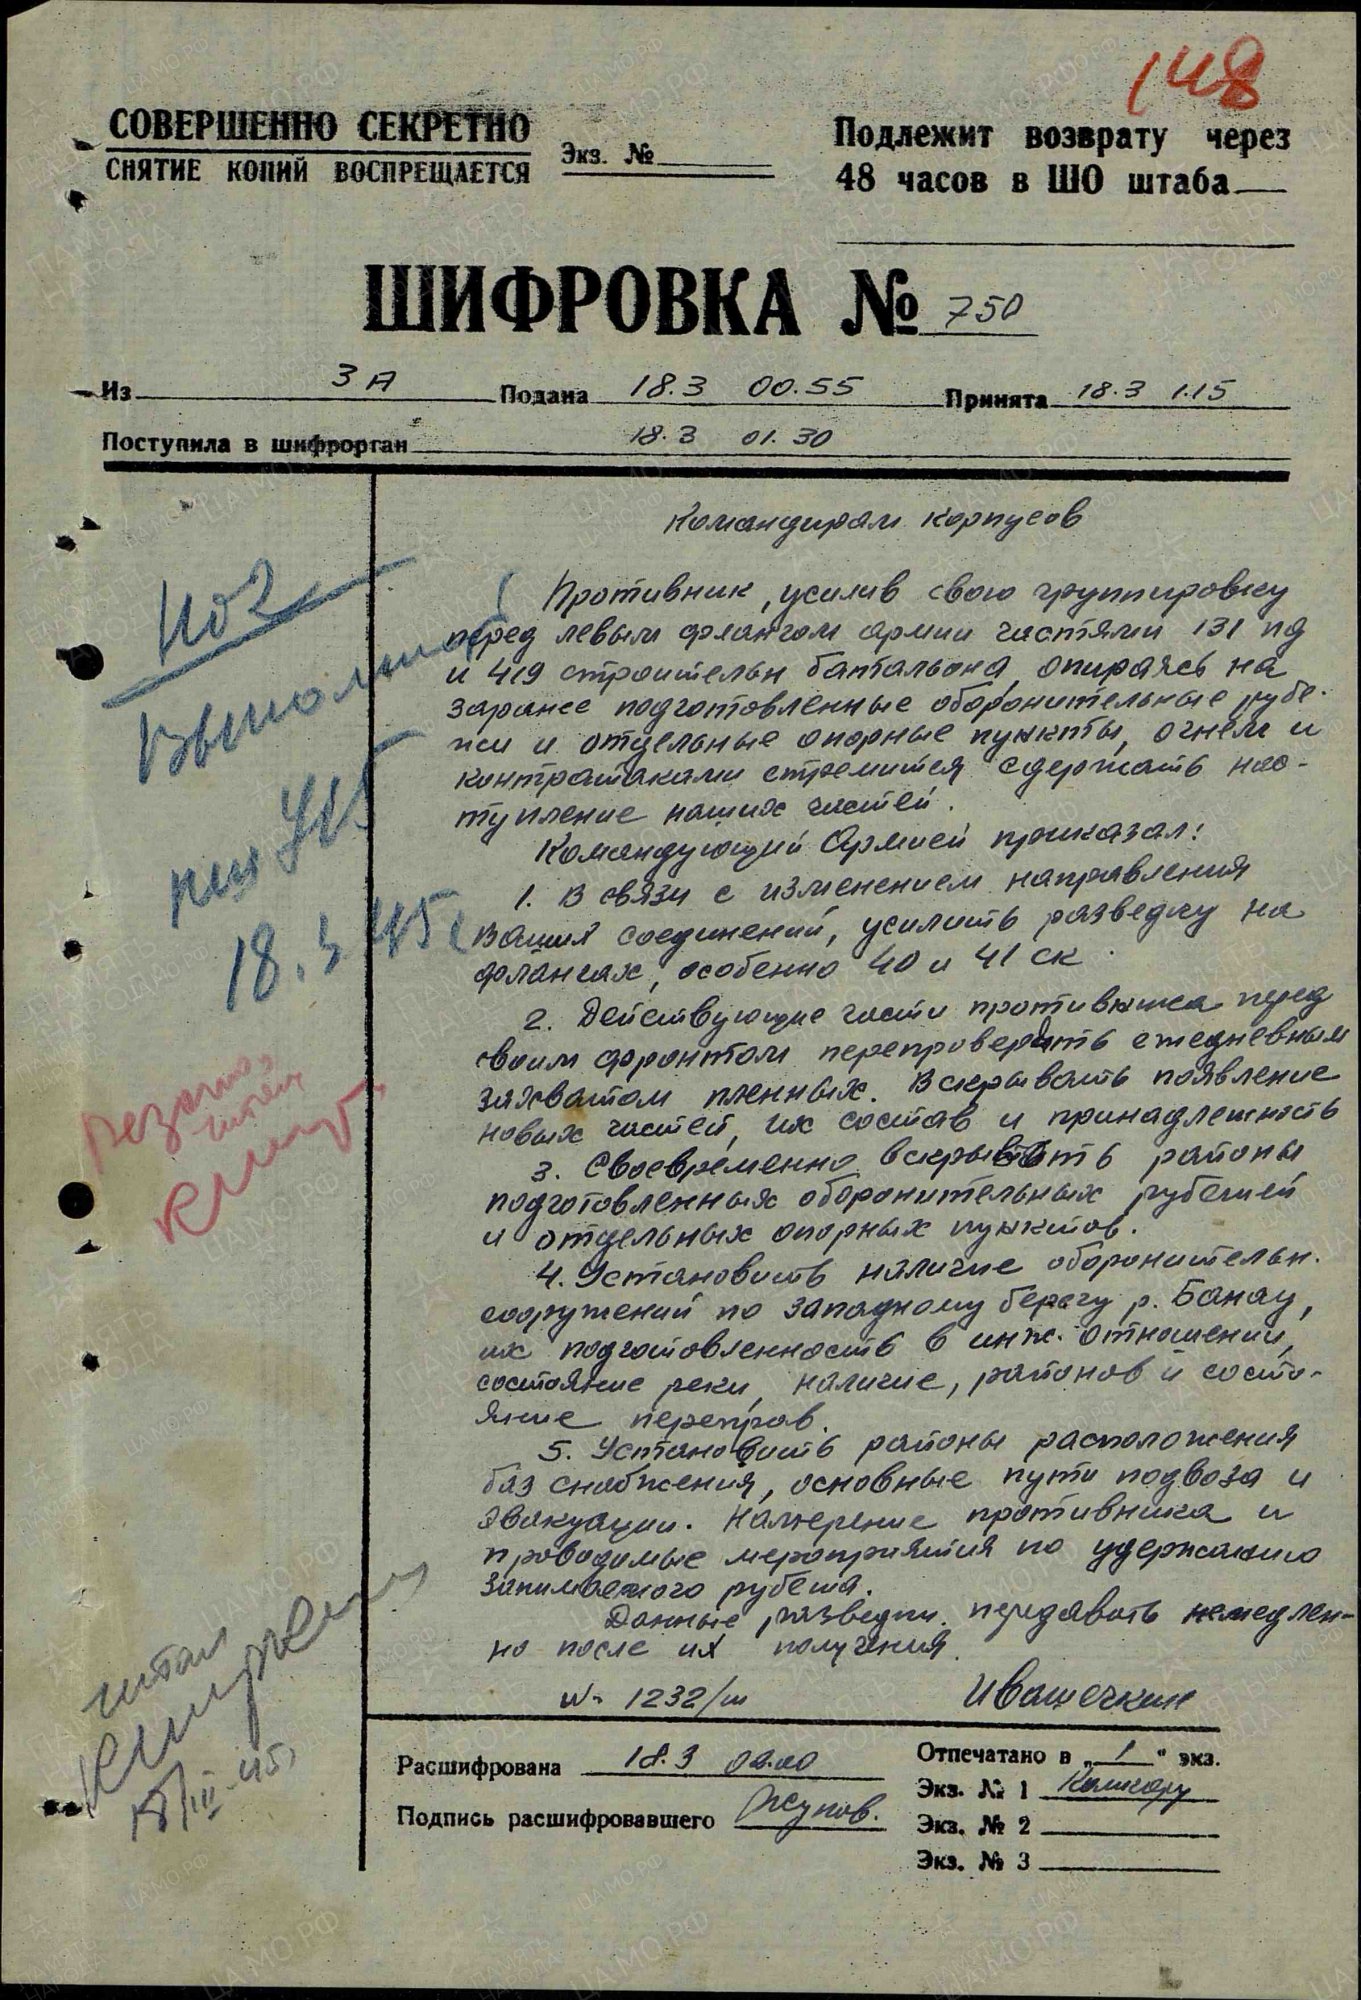 148
СОВЕРШЕННО СЕКРЕТНО
СНЯТИЕ КОПИЙ ВОСПРЕЩАЕТСЯ
Экз. №
Подлежит возврату через
48 часов в ШО штаба
ШИФРОВКА № 750
Из 3 А Подана 18.3 00.55 Принята 18.3 1.15
Поступила в шифрорган 18.3 01.30
Командирам корпусов
Противник, усилив свою группировку
перед левым флангом армии частями 131 пд
и 419 строительн батальона, опираясь на
заранее подготовленные оборонительные рубе-
жи и отдельные опорные пункты, огнем и
контратаками стремится сдержать нас-
тупление наших частей.
Командующий Армией приказал:
1. В связи с изменением направления
Ваших соединений, усилить разведку на
флангах, особенно 40 и 41 ск.
2. Действующие части противника перед
своим фронтом перепроверять ежедневным
захватом пленных. Вскрывать появление
новых частей, их состав и принадлежность
3. Своевременно вскрывать районы
подготовленных оборонительных рубежей
и отдельных опорных пунктов.
4. Установить наличие оборонительн.
сооружений по западному берегу р. Банау,
их подготовленность в инж. отношении,
состояние реки, наличие, районов и состо-
яние переправ.
5. Установить районы расположения
баз снабжения, основные пути подвоза и
эвакуации. Намерение противника и
проводимые мероприятия по удержанию
занимаемого рубежа.
Данные разведки передавать немедлен-
но после их получения.
№ 1232/ш Ивашечкин
Расшифрована 18.3 02.00
Подпись расшифровавшего
Отпечатано в "1" экз.
Экз. № 1
Экз. № 2
Экз. № 3
НО2
18.3.45г
читал
18/III-45г
ЦАМО.РФ
ПАМЯТЬ НАРОДА